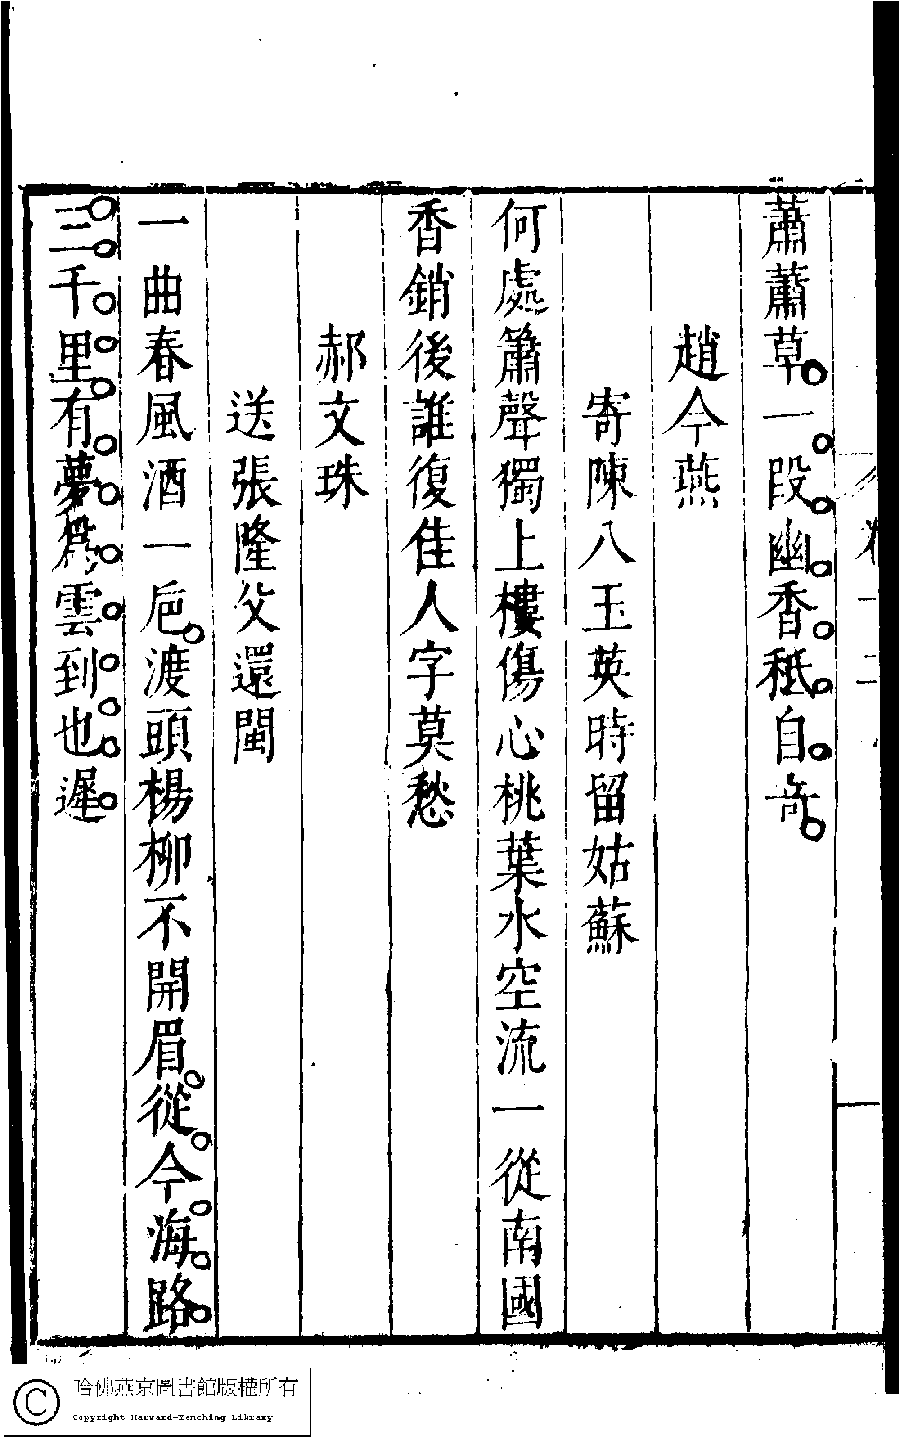 蕭蕭草一段幽香秪自奇
趙今燕
寄陳八玉英時留姑蘇
何處簫聲獨上樓傷心桃葉水空流一從南國
香銷後誰復佳人字莫愁
郝文珠
送張隆父還閩
一曲春風酒一巵渡頭楊柳不開眉從今海路
三千里有夢爲雲到也遲
哈佛燕京圖書館版權所有
Copyright Harvard-Yenching Library